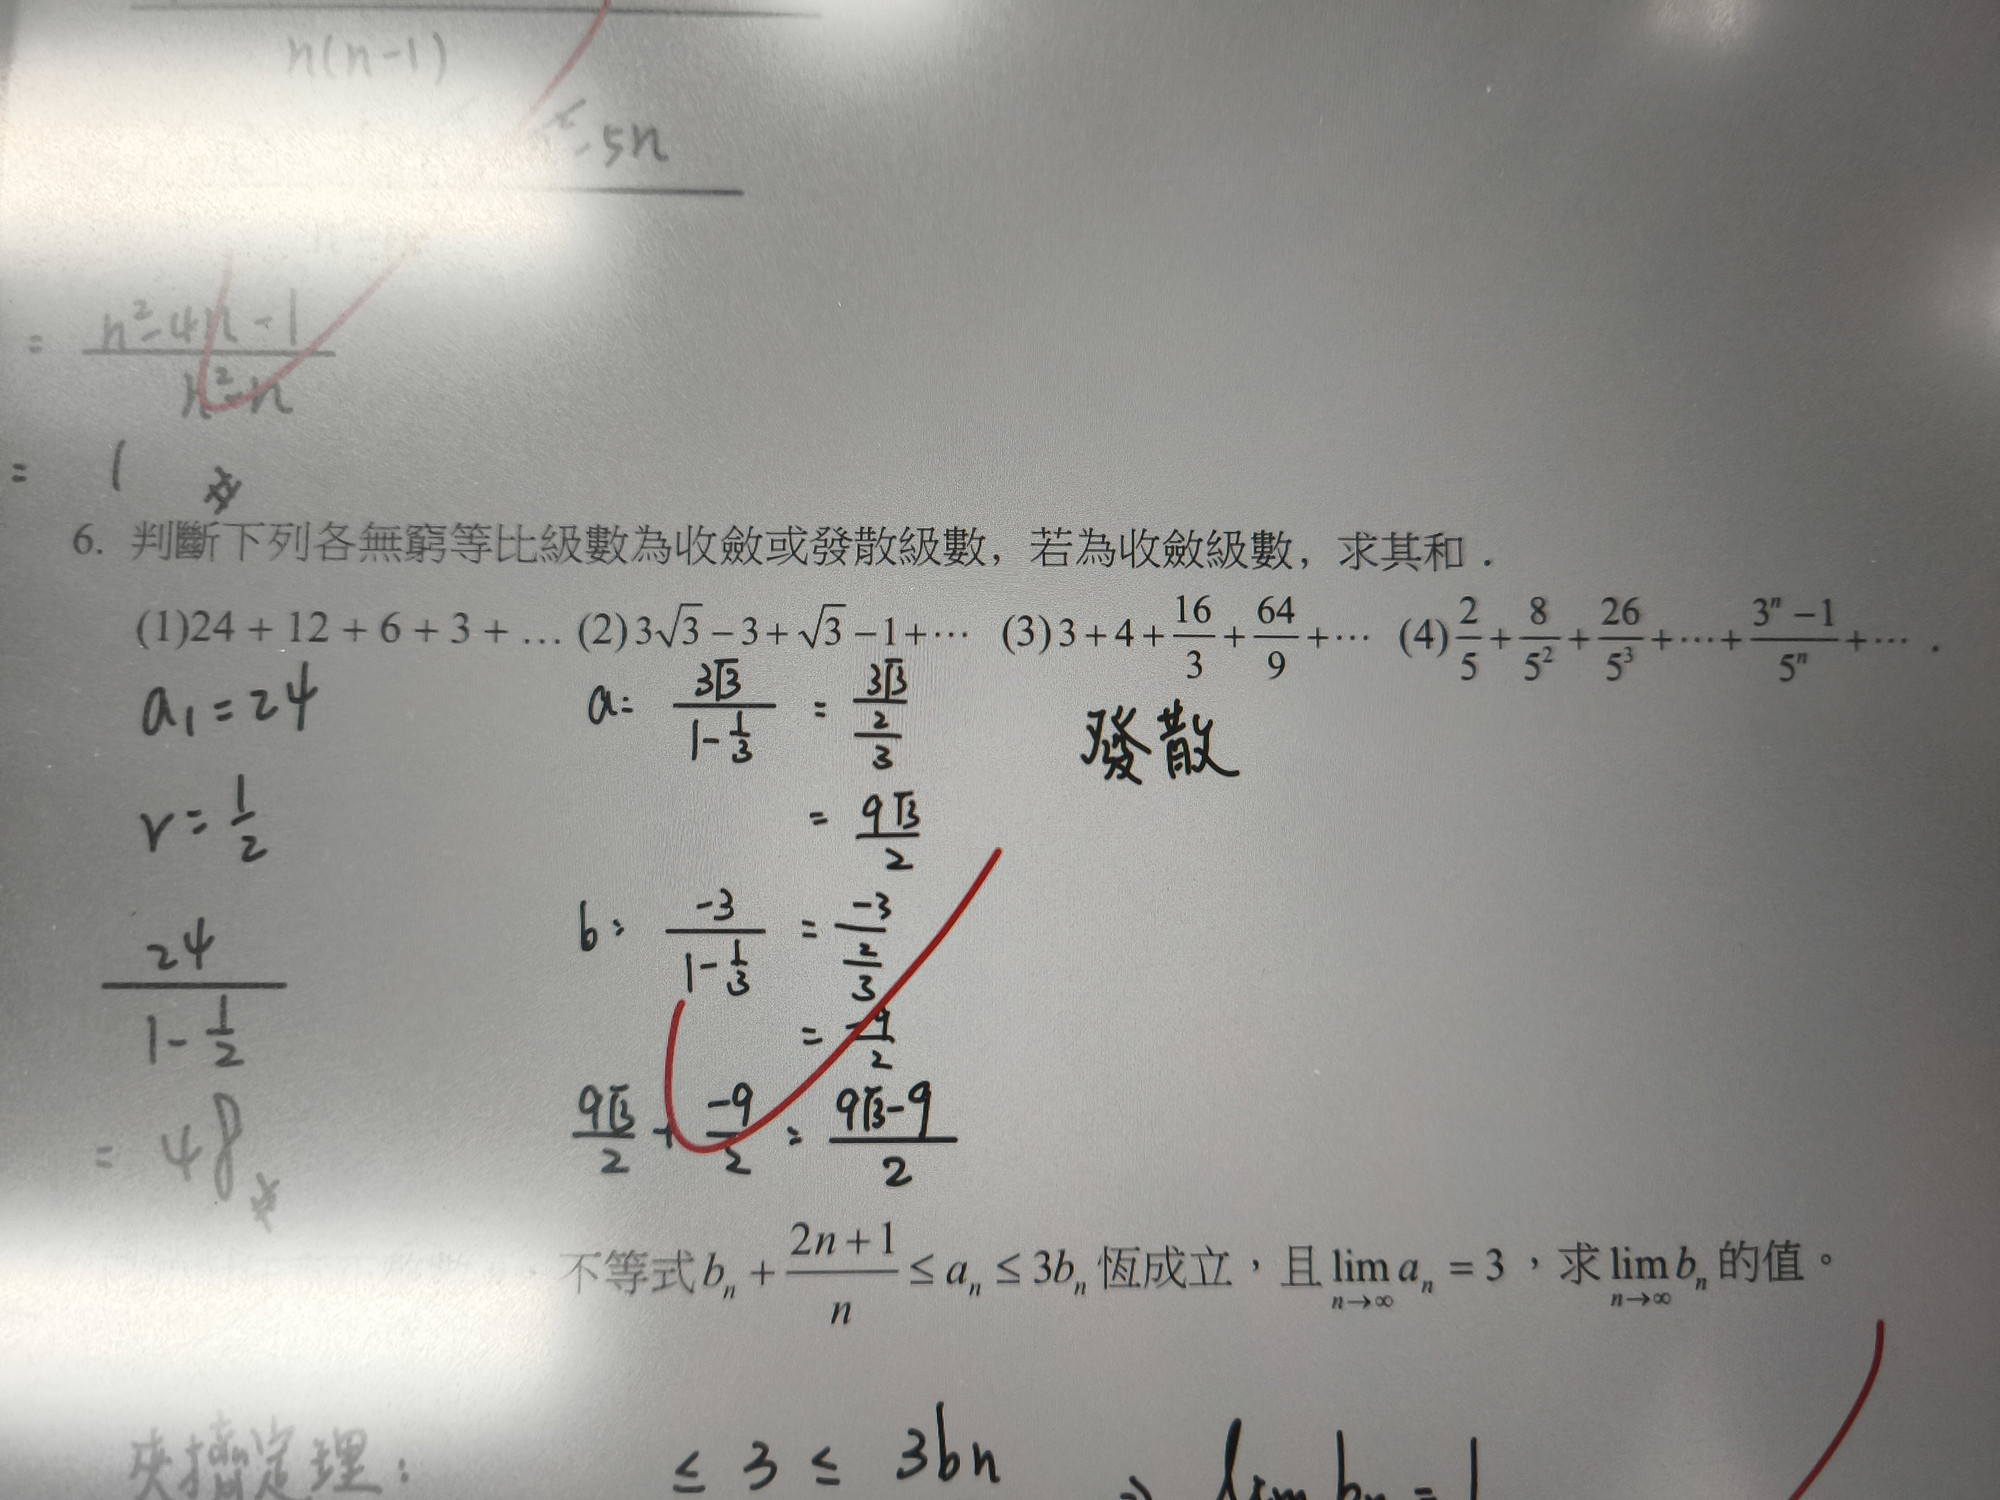 n(n-1)
-5n
= \frac{n^2-4n-1}{n^2-n}
= 1
6. 判斷下列各無窮等比級數為收斂或發散級數，若為收斂級數，求其和．
(1) 24 + 12 + 6 + 3 + … (2) 3√3 − 3 + √3 − 1 + ⋯ (3) 3 + 4 + \frac{16}{3} + \frac{64}{9} + ⋯ (4) \frac{2}{5} + \frac{8}{5^2} + \frac{26}{5^3} + ⋯ + \frac{3^n − 1}{5^n} + ⋯ ．
a_1 = 24
r = \frac{1}{2}
\frac{24}{1-\frac{1}{2}}
= 48
a = \frac{3√3}{1-\frac{1}{3}} = \frac{3√3}{\frac{2}{3}}
= \frac{9√3}{2}
b = \frac{-3}{1-\frac{1}{3}} = \frac{-3}{\frac{2}{3}}
= \frac{-9}{2}
\frac{9√3}{2} + \frac{-9}{2} = \frac{9√3-9}{2}
發散
不等式 b_n + \frac{2n+1}{n} ≤ a_n ≤ 3b_n 恆成立，且 \lim_{n→∞} a_n = 3，求 \lim_{n→∞} b_n 的值。
夾擠定理：
≤ 3 ≤ 3bn
⇒ lim bn = 1